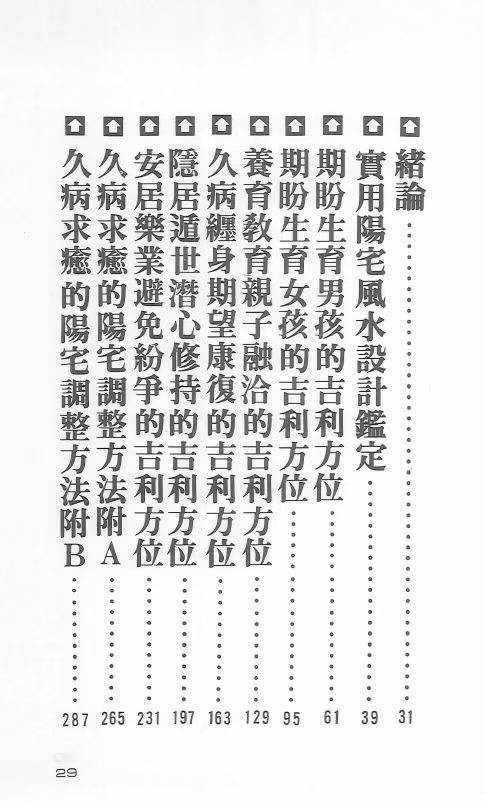 緒論…………31
實用陽宅風水設計鑑定…………39
期盼生育男孩的吉利方位…………61
期盼生育女孩的吉利方位…………95
養育教育親子融洽的吉利方位…………129
久病纏身期望康復的吉利方位…………163
隱居遁世潛心修持的吉利方位…………197
安居樂業避免紛爭的吉利方位…………231
久病求癒的陽宅調整方法附A…………265
久病求癒的陽宅調整方法附B…………287
29